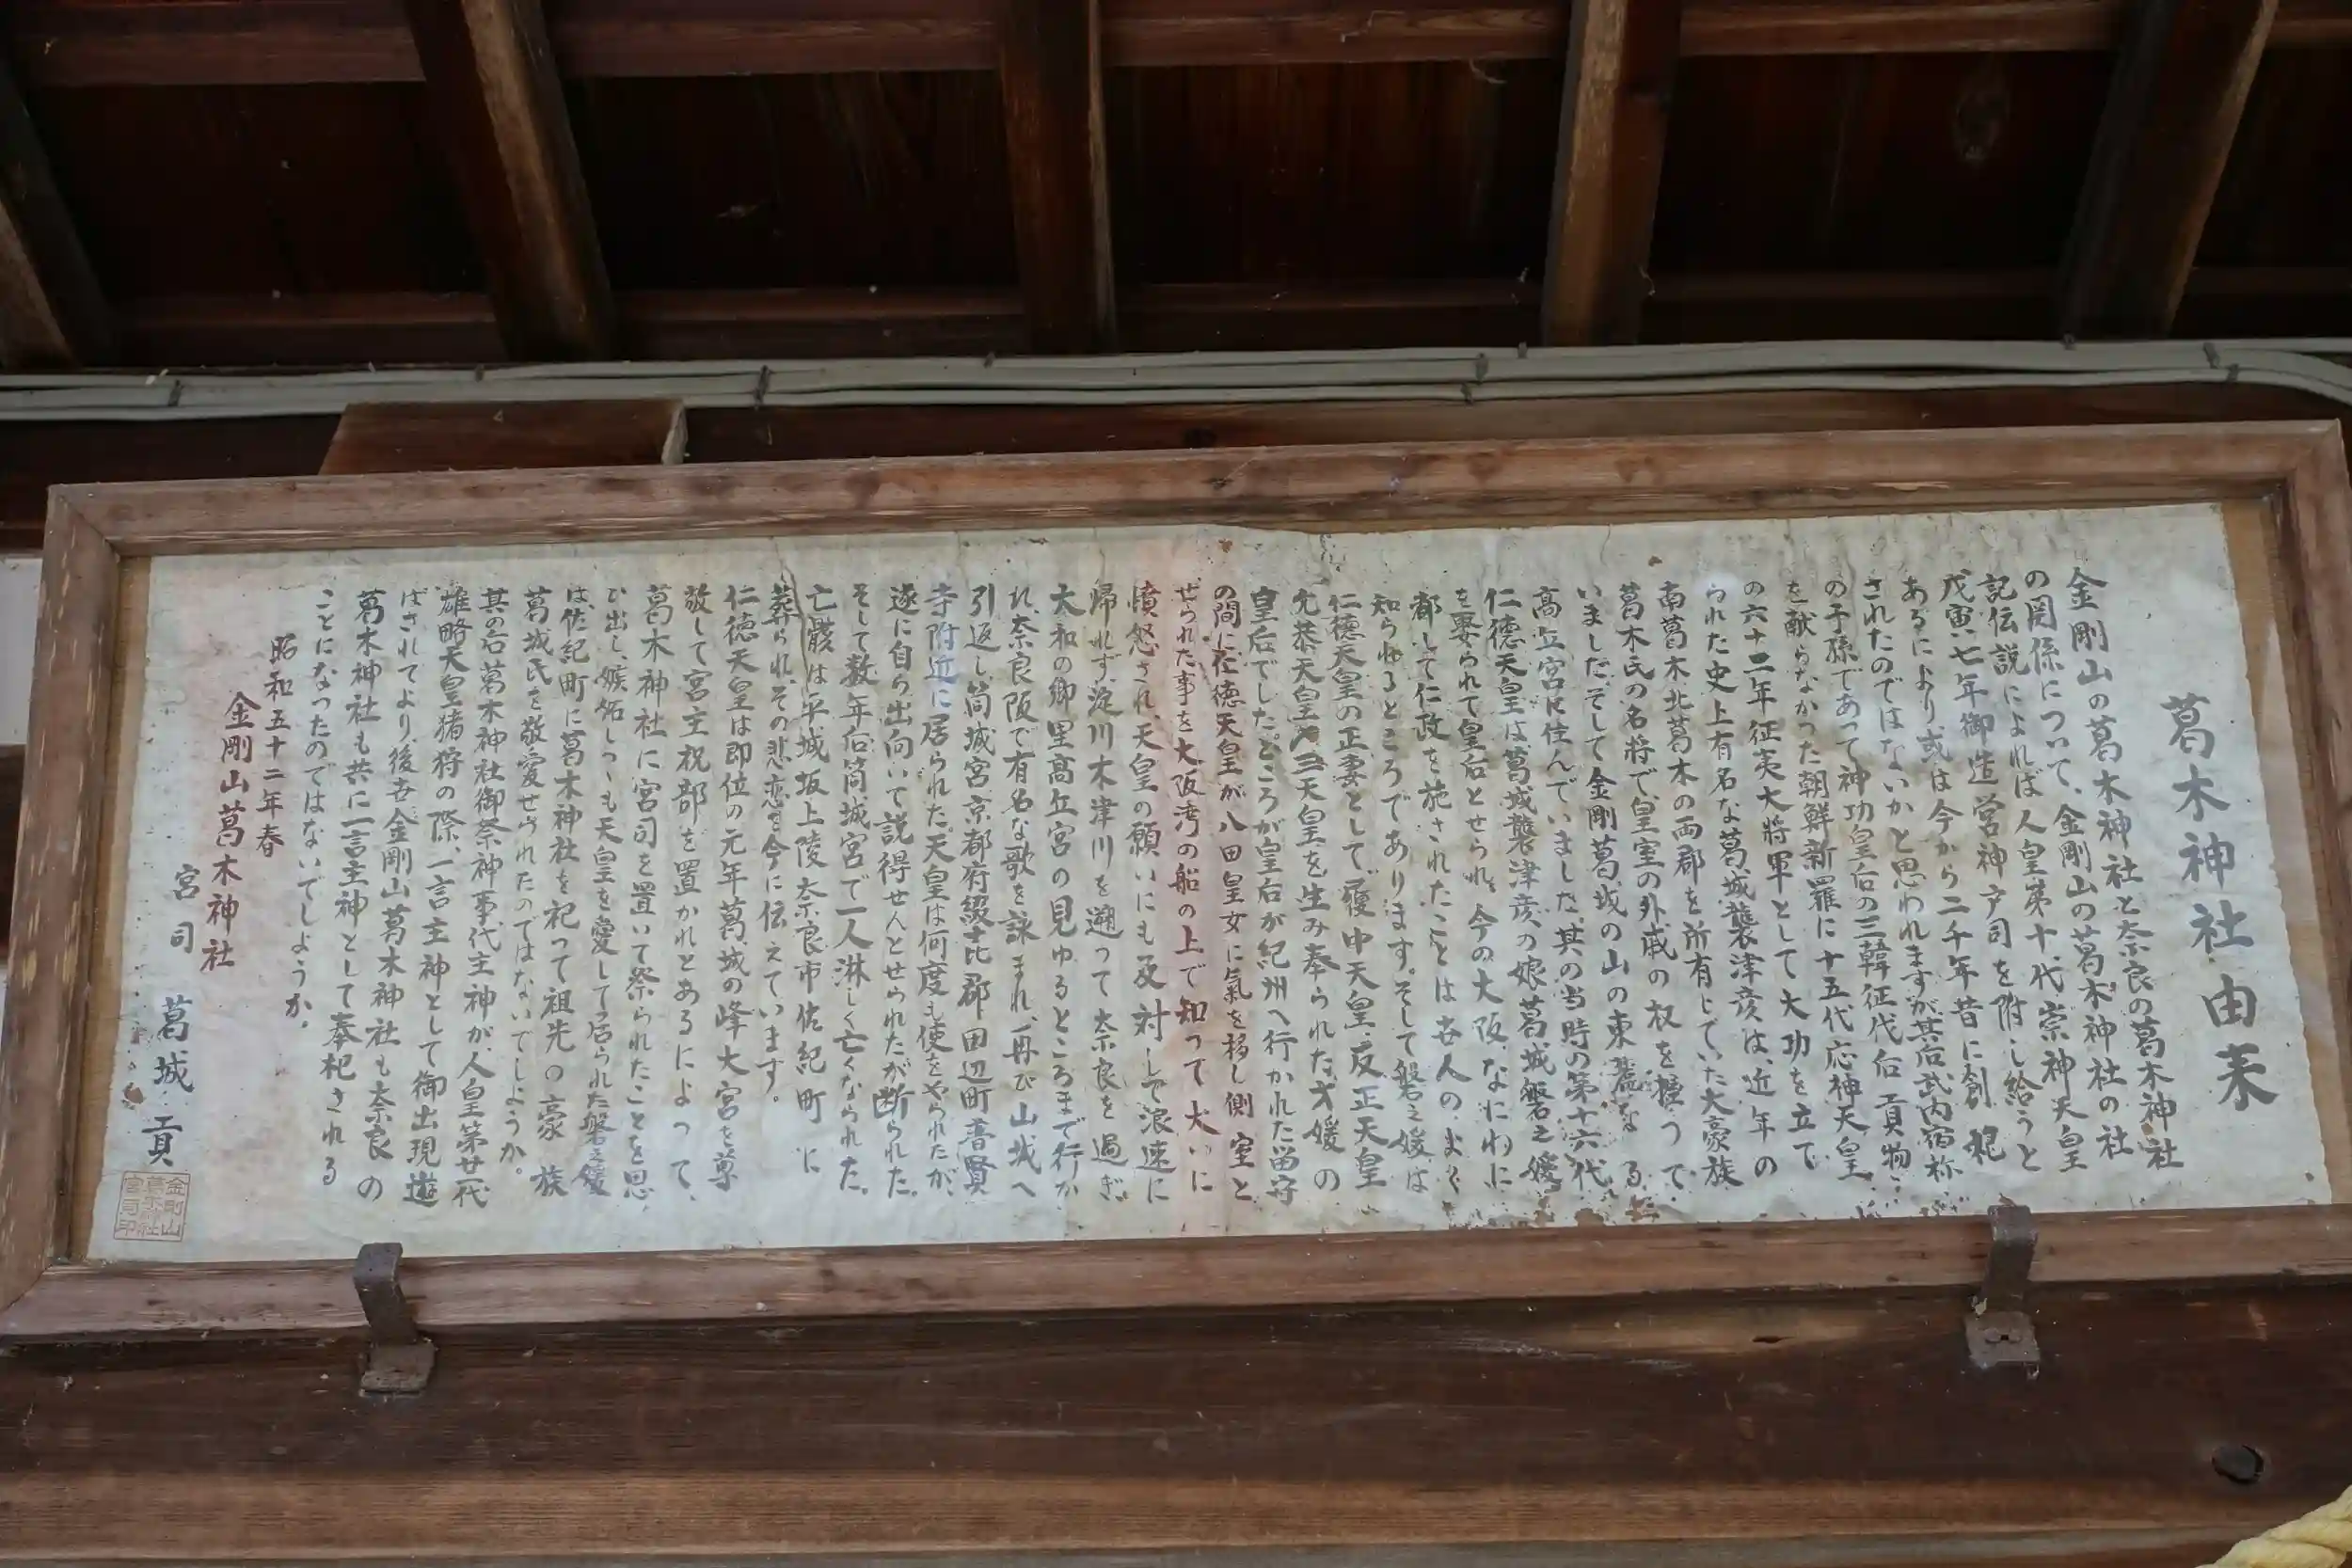 葛木神社由来
金剛山の葛木神社と奈良の葛木神社
の関係について、金剛山の葛木神社の社
記伝説によれば人皇第十代崇神天皇
戊寅、七年御造営神戸司を附し給うと
あるにより或は今から二千年昔に創祀
されたのではないかと思われますが其后武内宿祢
の子孫であって神功皇后の三韓征代后貢物
を献らなかった朝鮮新羅に十五代応神天皇
の六十二年征夷大将軍として大功を立て
られた史上有名な葛城襲津彦は、近年の
南葛木北葛木の両郡を所有していた大豪族
葛木氏の名将で、皇室の外戚の权を握って
いました。そして金剛葛城の山の東麓なる
高丘宮に住んでいました。其の当時の第十六代
仁徳天皇は葛城襲津彦の娘葛城磐之媛
を娶られて皇后とせられ、今の大阪、なにわに
都して仁政を施されたことは世人のよく
知られるところであります。そして磐之媛は
仁徳天皇の正妻として、履中天皇、反正天皇
允恭天皇の三天皇を生み奉られた才媛の
皇后でした。ところが皇后が紀州へ行かれた留守
の間に仁徳天皇が八田皇女に氣を移し側室と
せられた事を大阪湾の船の上で知って大いに
憤怒され、天皇の願いにも反対して浪速に
帰れず、淀川木津川を遡って奈良を過ぎ
大和の郷里高丘宮の見ゆるところまで行か
れ、奈良阪で有名な歌を詠まれ、再び山城へ
引返し筒城宮京都府綴喜郡田辺町普賢
寺附近に居られた。天皇は何度も使をやられたが、
遂に自ら出向いて説得せんとせられたが断られた。
そして数年后筒城宮で一人淋しく亡くなられた。
亡骸は平城坂上陵奈良市佐紀町に
葬られ、その悲恋を今に伝えています。
仁徳天皇は即位の元年葛城の峰大宮を尊
敬して宮主祝部を置かれとあるによって、
葛木神社に宮司を置いて祭られたことを思
ひ出し、嫉妬しつゝも天皇を愛して居られた磐之媛
は、佐紀町に葛木神社を祀って祖先の豪族
葛城氏を敬愛せられたのではないでしようか。
其の后葛木神社御祭神事代主神が、人皇第廿一代
雄略天皇猪狩の際、一言主神として御出現遊
ばされてより、後世金剛山葛木神社も奈良の
葛木神社も共に一言主神として奉祀される
ことになったのではないでしようか。
昭和五十二年春
金剛山葛木神社
宮司 葛城 貢
金剛山
葛木神社
宮司印